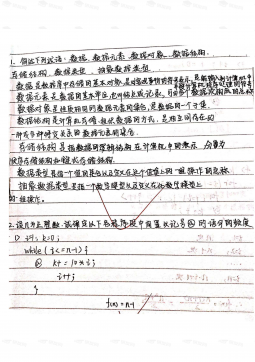 1. 简述下列术语：数据、数据元素、数据对象、数据结构、
存储结构、数据类型、抽象数据类型
数据是数据库中存储的基本对象，是
数据元素是数据的基本单位，也
数据对象是性质相同的数据元素的集合，是数据的一个子集。
数据结构是计算机存储、组织数据的方式，是相互间存在的
一种或多种特定关系的数据元素的集合。
存储结构 是指数据的逻辑结构在计算机中的表示 分为
顺序存储结构和链式存储结构。
数据类型是指一个值的集合以及定义在这个值集上的一组操作的总称
抽象数据类型是指一个数学模型以及定义在此数学模型上
的一组操作。
2. 设n为正整数，试确定以下各程序段中前置以记号@的语句的频度
k=0;
while (i<=n-1) {
@ k+=10*i;
i++;
}
f(n)=n-1